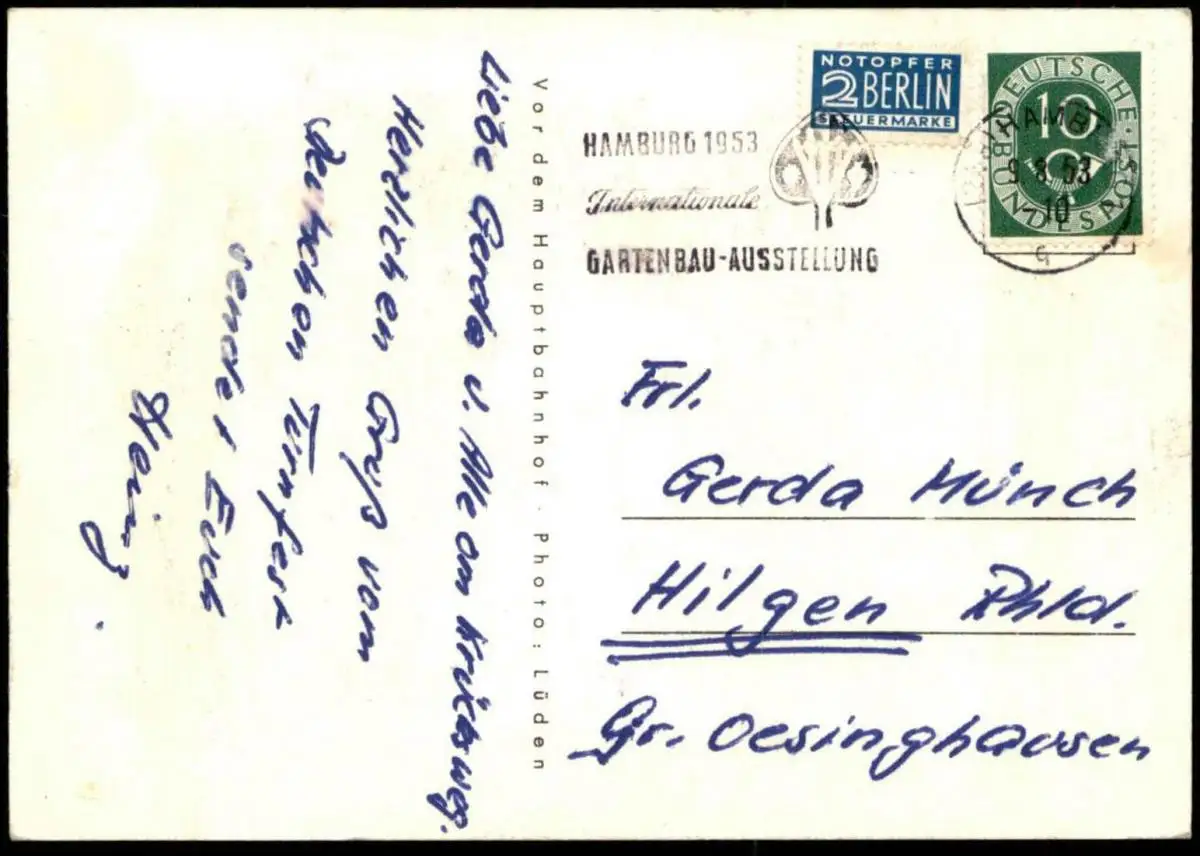 Liebe Gerda u. Alle am Krichsweg.
Herzlichen Gruß vom
deutschen Turnfest
sendet Euch
Heinz.
Vor dem Hauptbahnhof · Photo: Lüden
NOTOPFER
2 BERLIN
STEUERMARKE
HAMBURG 1953
Internationale
GARTENBAU-AUSSTELLUNG
DEUTSCHE BUNDESPOST
10
HAMBURG
9.8.53
-10
Frl.
Gerda Münch
Hilgen Rhld.
Gr. Oesinghausen